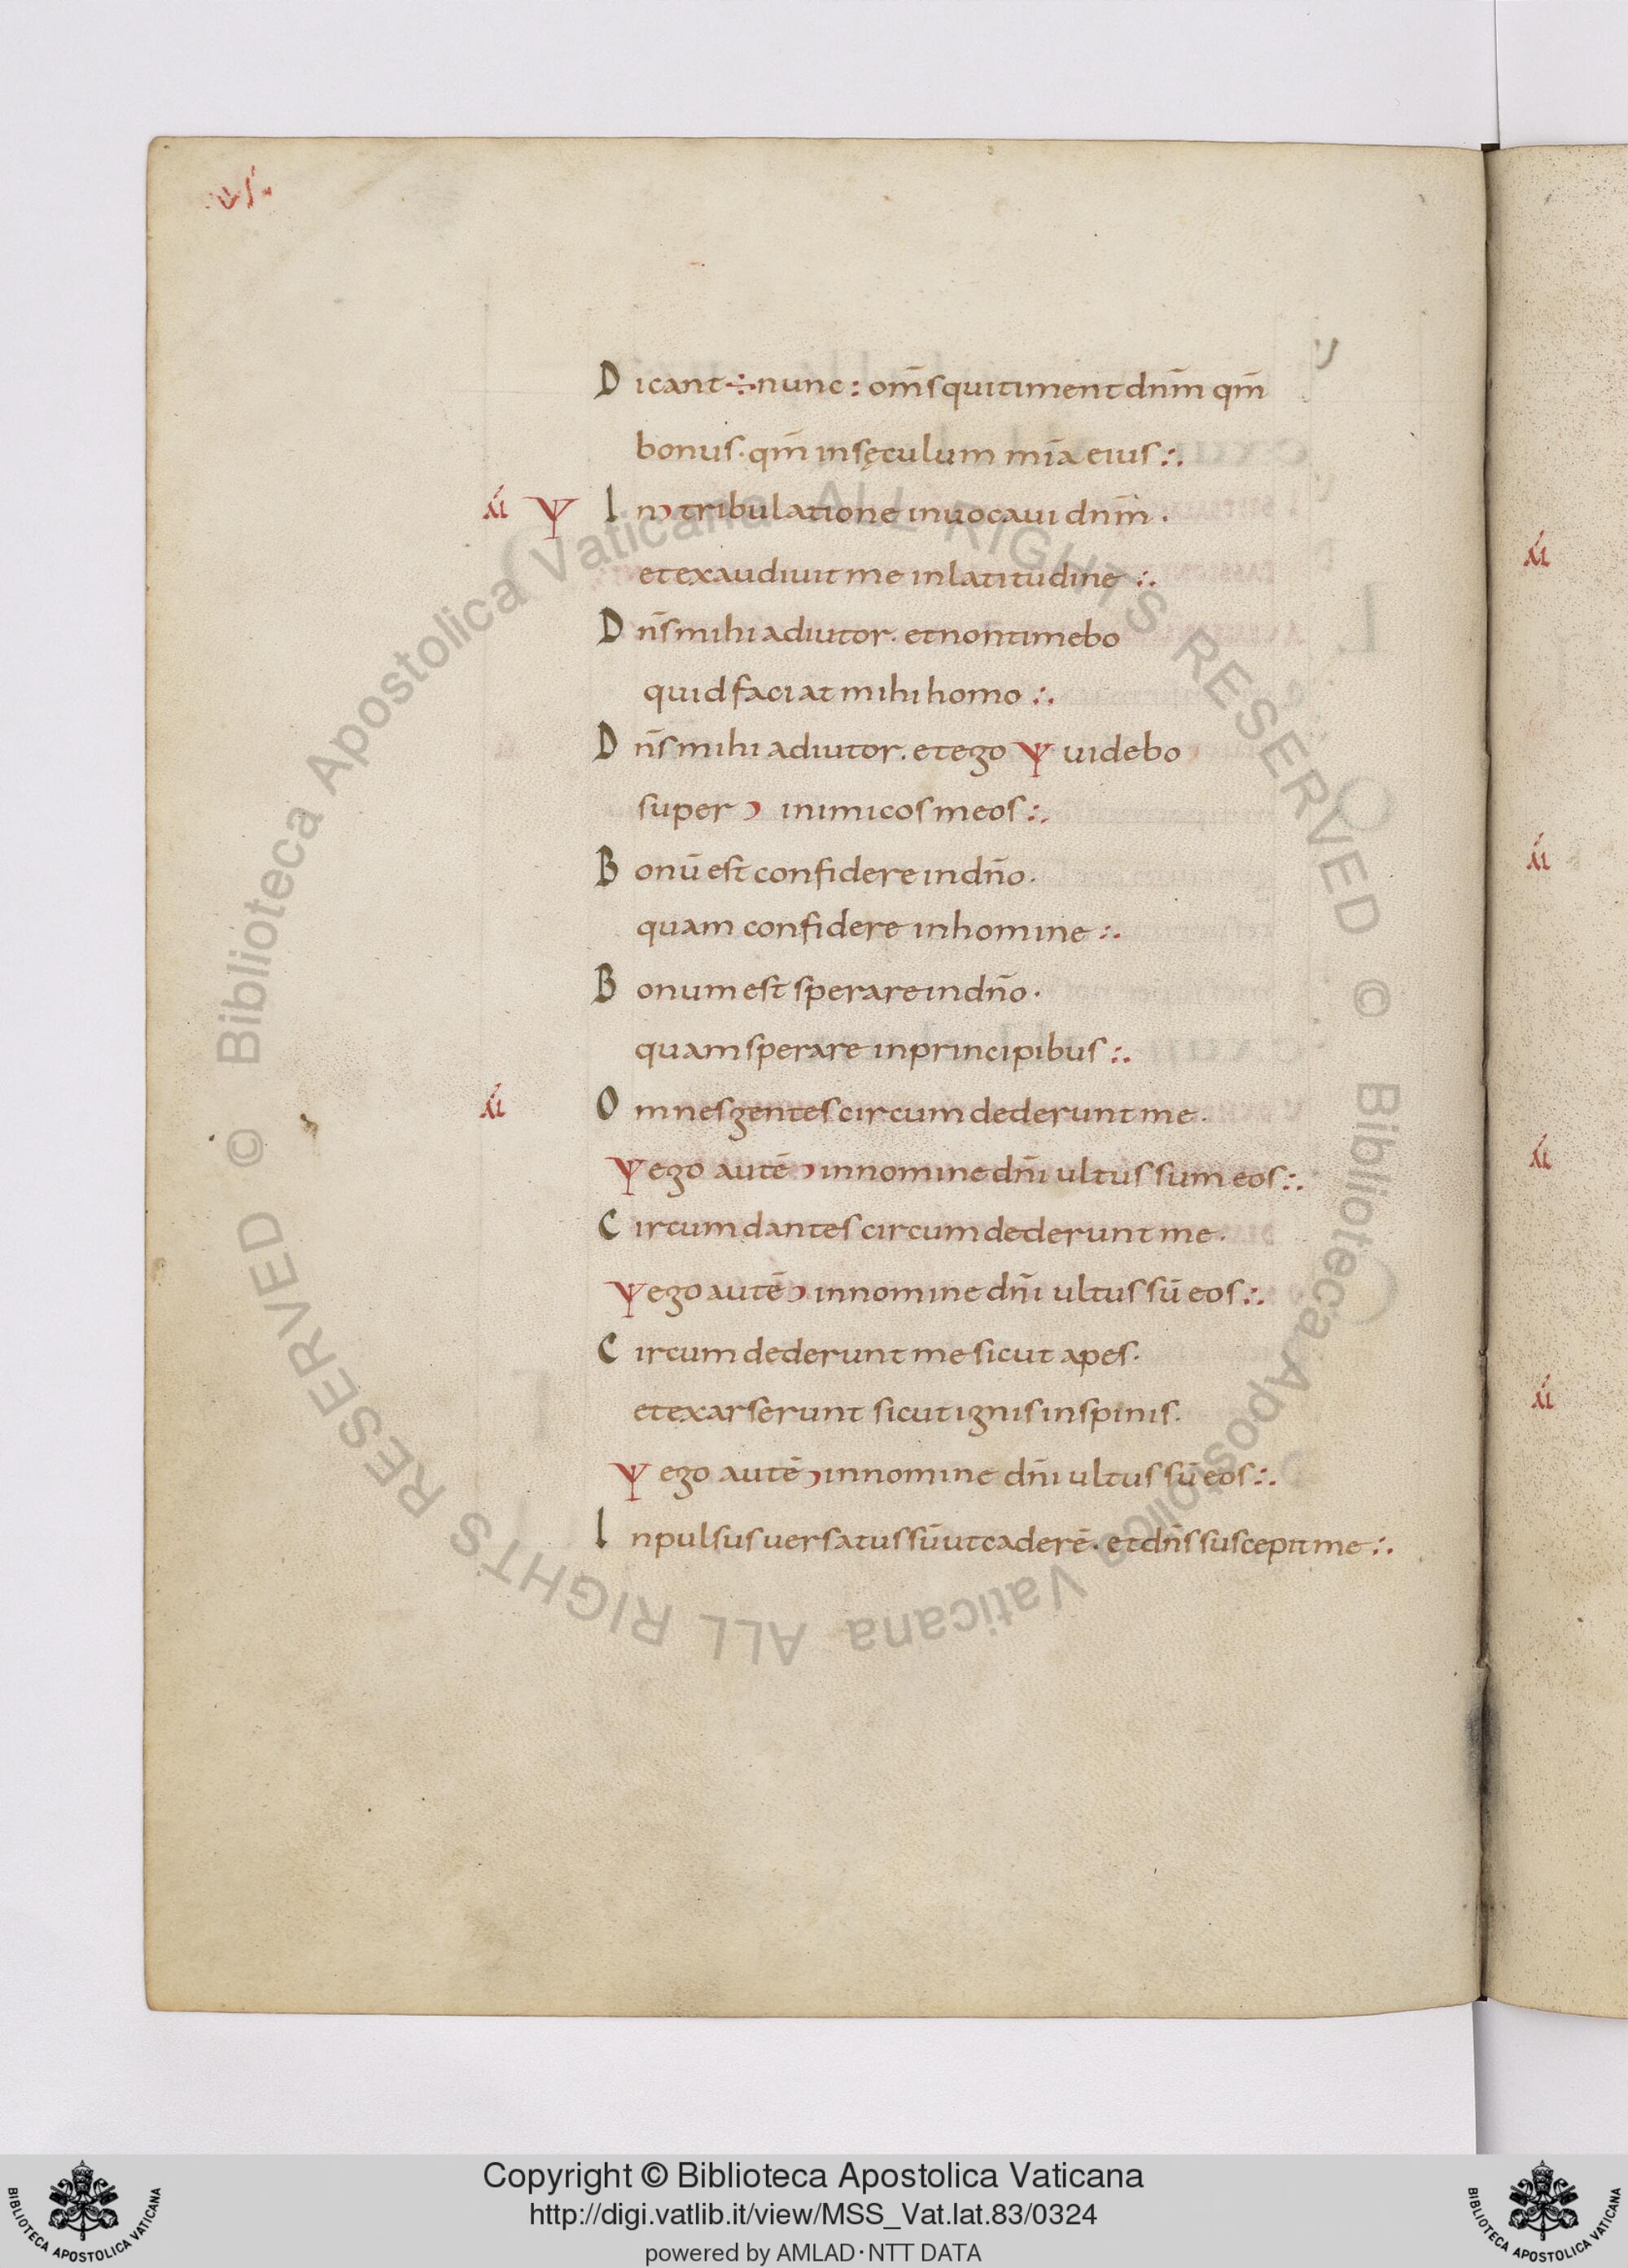 Dicant÷nunc: om̄s qui timent dn̄m qm̄
bonus· qm̄ in sęculum mīa eius :.
Ψ In tribulatione inuocaui dn̄m·
et exaudiuit me in latitudine :.
Dn̄s mihi adiutor· et non timebo
quid faciat mihi homo :.
Dn̄s mihi adiutor· et ego Ψ uidebo
super inimicos meos :.
Bonū est confidere in dn̄o·
quam confidere in homine :.
Bonum est sperare in dn̄o·
quam sperare in principibus :.
Omnes gentes circumdederunt me·
Ψ ego autē in nomine dn̄i ultus sum eos :.
Circumdantes circumdederunt me·
Ψ ego autē in nomine dn̄i ultus sū eos :.
Circumdederunt me sicut apes·
et exarserunt sicut ignis in spinis·
Ψ ego autē in nomine dn̄i ultus sū eos :.
Inpulsus uersatus sū ut caderē· et dn̄s suscepit me :.
© Biblioteca Apostolica Vaticana ALL RIGHTS RESERVED © Biblioteca Apostolica Vaticana ALL RIGHTS RESERVED
Copyright © Biblioteca Apostolica Vaticana
http://digi.vatlib.it/view/MSS_Vat.lat.83/0324
powered by AMLAD·NTT DATA
BIBLIOTECA APOSTOLICA VATICANA
BIBLIOTECA APOSTOLICA VATICANA